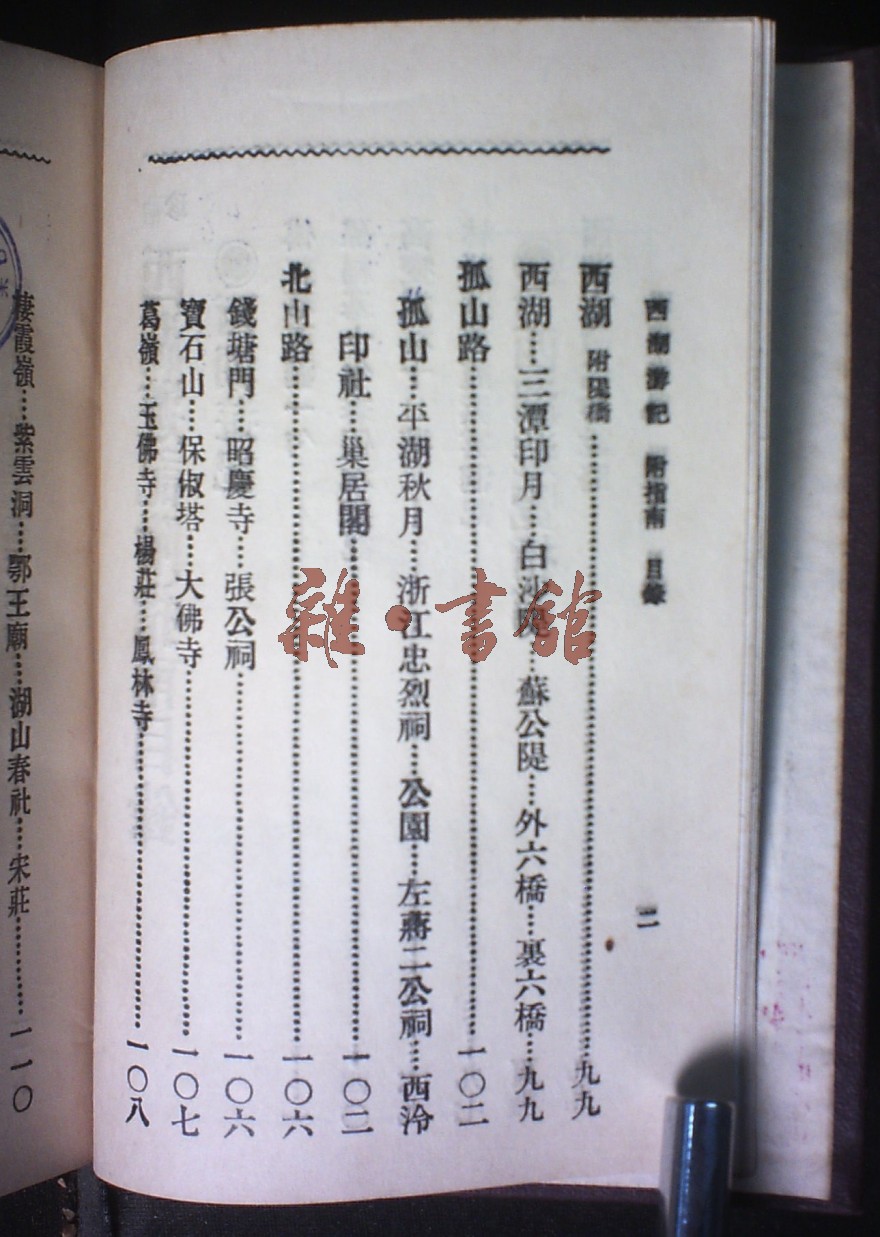 西湖游記 附指南 目錄 二
西湖 附隄橋……九九
西湖……三潭印月……白沙隄……蘇公隄……外六橋……裏六橋……九九
孤山路……一〇二
孤山……平湖秋月……浙江忠烈祠……公園……左蔣二公祠……西泠
印社……巢居閣……一〇二
北山路……一〇六
錢塘門……昭慶寺……張公祠……一〇六
寶石山……保俶塔……大佛寺……一〇七
葛嶺……玉佛寺……楊莊……鳳林寺……一〇八
棲霞嶺……紫雲洞……鄂王廟……湖山春社……宋莊……一一〇
雜·書館